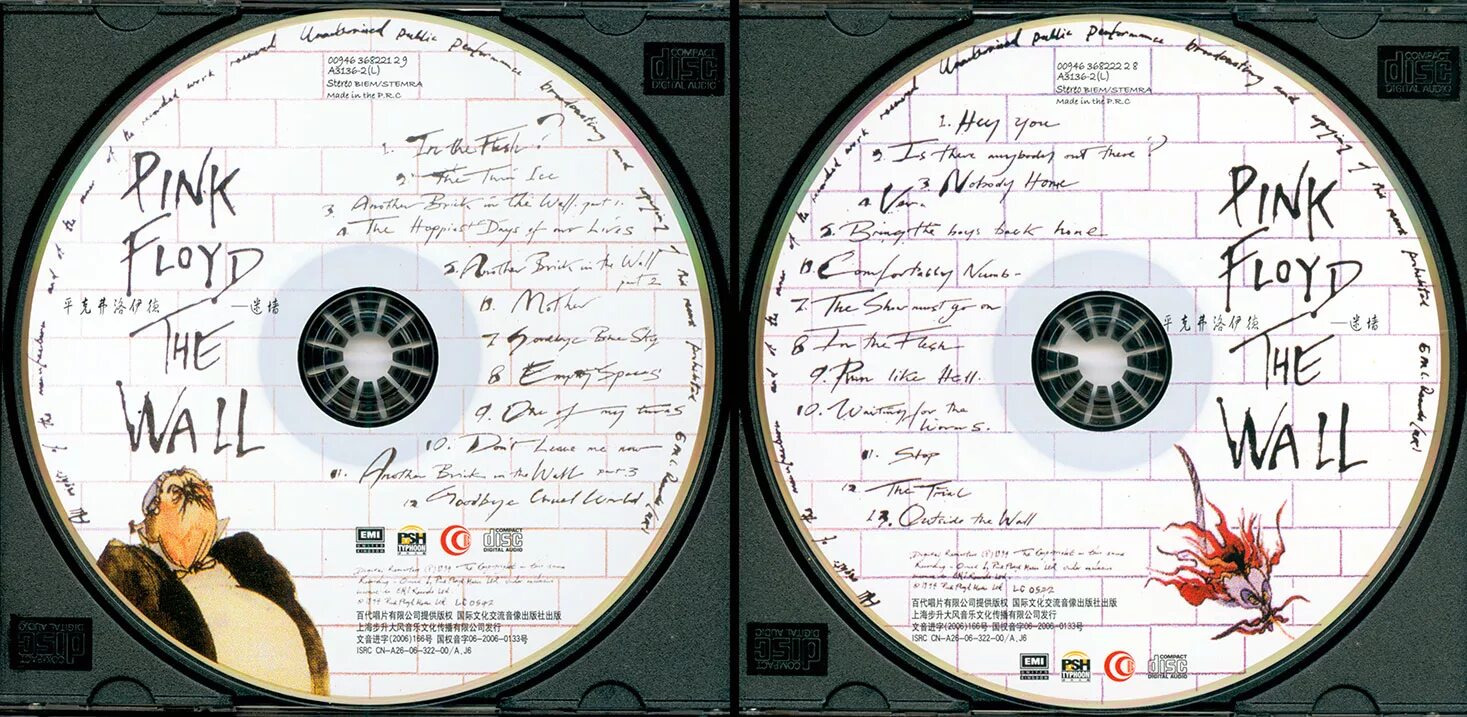 00946 368221 2 9
A3136-2(L)
Stereo BIEM/STEMRA
Made in the P.R.C
PINK
FLOYD
THE
WALL
平克弗洛伊德 —迷墙
1. In the Flesh?
2. The Thin Ice
3. Another Brick in the Wall part 1.
4. The Happiest Days of our Lives
5. Another Brick in the Wall
part 2
6. Mother
7 Goodbye Blue Sky
8 Empty Spaces
9. One of my turns
10. Don't Leave me now
11. Another Brick in the Wall part 3
12 Goodbye Cruel World.
EMI
UNITED
KINGDOM
PSH
TYPHOON
COMPACT
disc
DIGITAL AUDIO
百代唱片有限公司提供版权 国际文化交流音像出版社出版
上海步升大风音乐文化传播有限公司发行
文音进字(2006)166号 国权音字06-2006-0133号
ISRC CN-A26-06-322-00/A.J6
COMPACT
disc
DIGITAL AUDIO
COMPACT
disc
DIGITAL AUDIO
Unauthorised public performance broadcasting and copying of this record prohibited
00946 368222 2 8
A3136-2(L)
Stereo BIEM/STEMRA
Made in the P.R.C
1. Hey you
2. Is there anybody out there?
3. Nobody Home
4. Vera
5. Bring the boys back home
6. Comfortably Numb
7. The Show must go on
8 In the Flesh
9. Run like Hell.
10. Waiting for the
Worms.
11. Stop
12. The Trial
13. Outside the Wall
PINK
FLOYD
THE
WALL
平克弗洛伊德 —迷墙
百代唱片有限公司提供版权 国际文化交流音像出版社出版
上海步升大风音乐文化传播有限公司发行
文音进字(2006)166号 国权音字06-2006-0133号
ISRC CN-A26-06-322-00/A.J6
EMI
UNITED
KINGDOM
PSH
TYPHOON
COMPACT
disc
DIGITAL AUDIO
COMPACT
disc
DIGITAL AUDIO
COMPACT
disc
DIGITAL AUDIO
Unauthorised public performance broadcasting and copying of this record prohibited